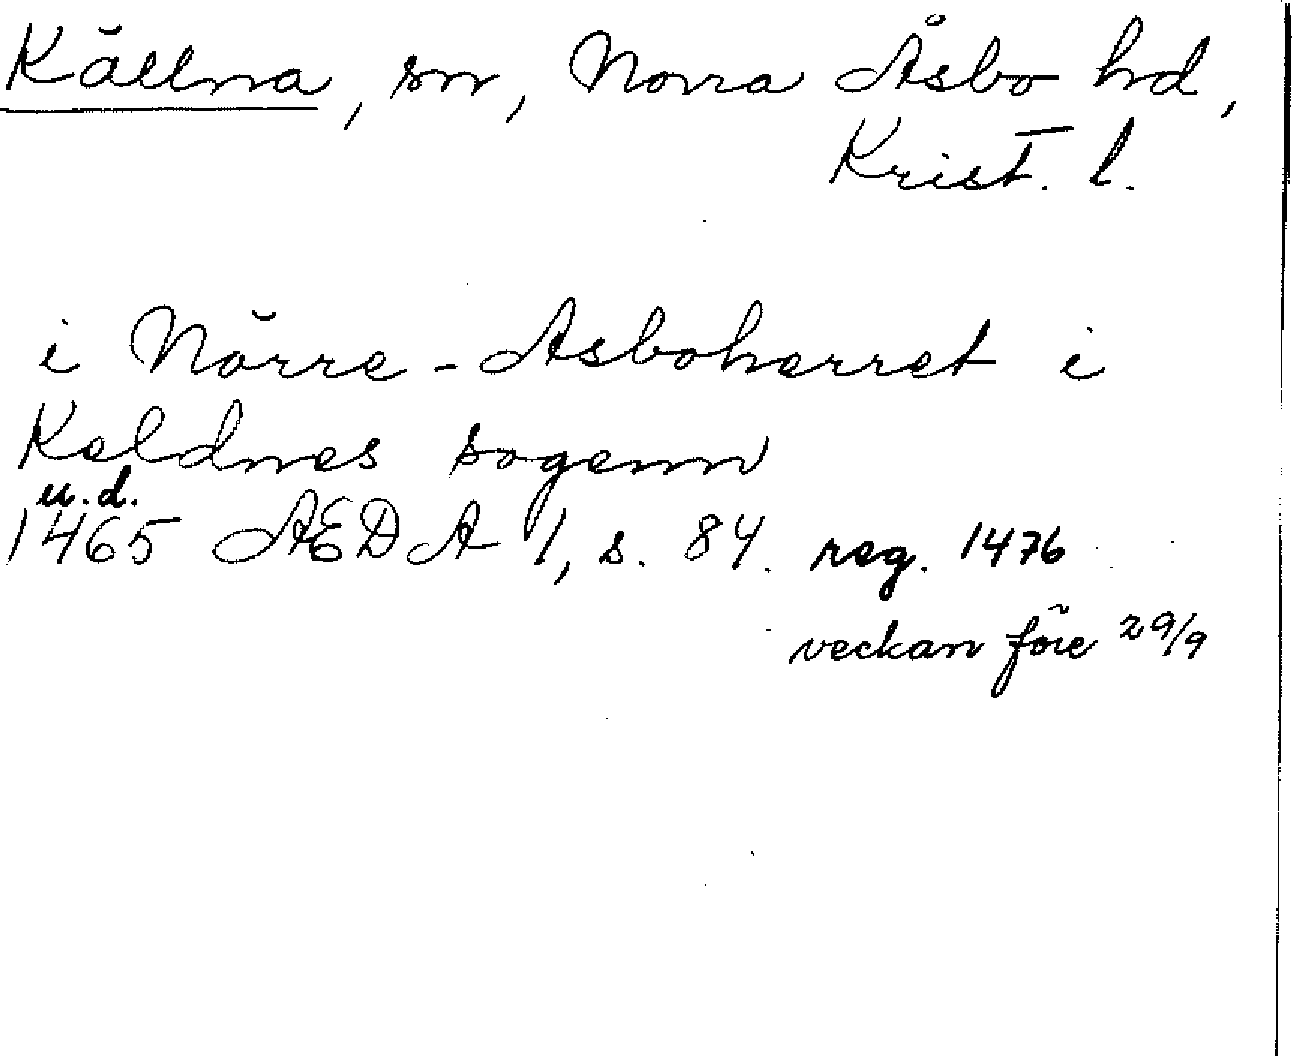 Källna, sn, Norra Åsbo hd,
Krist. l.
i Nörre-Asboherret i
Keldnes sogenn
u.d.
1465 ÆDA 1, s. 84. reg. 1476
veckan före 29/9